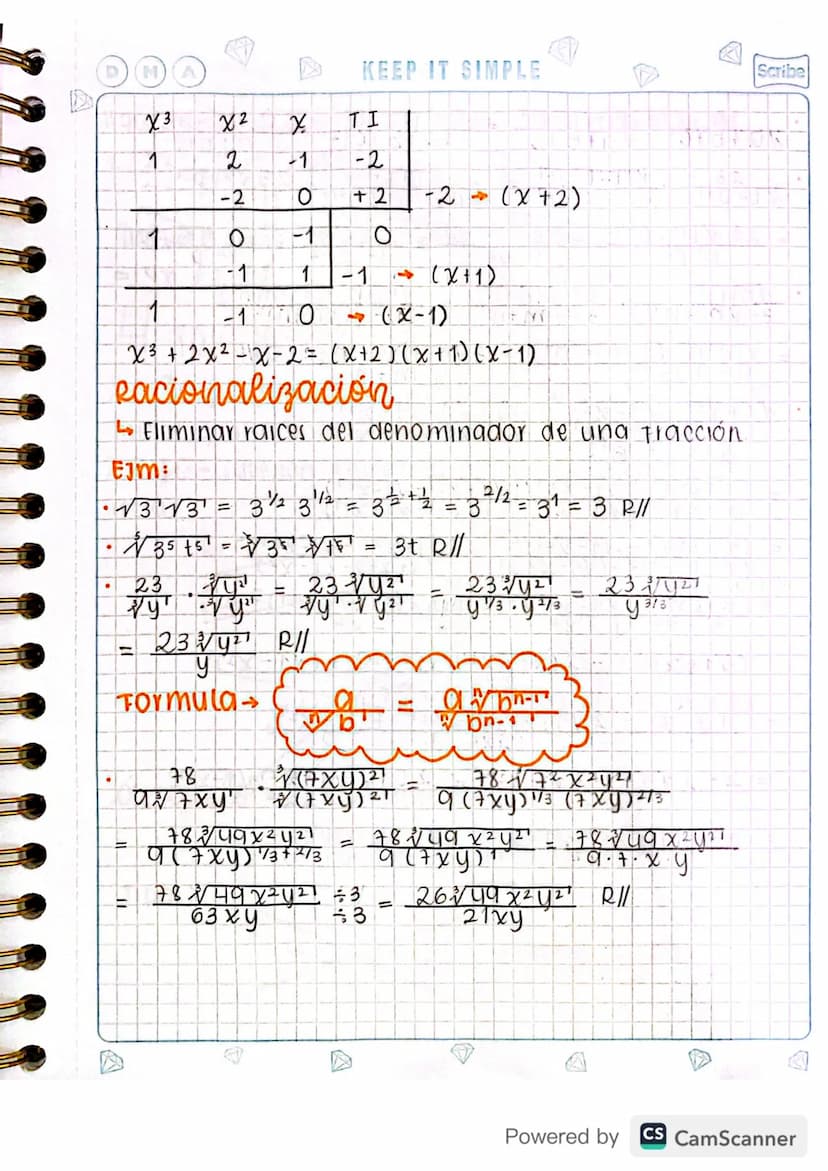 D M A KEEP IT SIMPLE Scribe
x³ x² x TI
1 2 -1 -2
-2 0 +2 -2 → (x+2)
1 0 -1 0
-1 1 -1 → (x+1)
1 -1 0 → (x-1)
x³ + 2x² - x - 2 = (x+2)(x+1)(x-1)
Racionalización
↳ Eliminar raices del denominador de una fracción
Ejm:
• √3 √3 = 3^1/2 3^1/2 = 3^1/2+1/2 = 3^2/2 = 3^1 = 3 R//
• ⁵√3⁵t⁵ = ⁵√3⁵ ⁵√t⁵ = 3t R//
• 23/³√y · ³√y²/³√y² = 23 ³√y²/³√y · ³√y² = 23 ³√y²/y^1/3 · y^2/3 = 23 ³√y²/y^3/3
= 23 ³√y²/y R//
Formula → a/ⁿ√b = a ⁿ√bⁿ⁻¹/ⁿ√bⁿ⁻¹
• 78/9 ³√7xy · ³√(7xy)²/³√(7xy)² = 78 ³√7²x²y²/9(7xy)^1/3 (7xy)^2/3
= 78 ³√49x²y²/9(7xy)^1/3+2/3 = 78 ³√49x²y²/9(7xy)^1 = 78 ³√49x²y²/9·7·x y
= 78 ³√49x²y²/63xy ÷3/÷3 = 26 ³√49x²y²/21xy R//
Powered by CS CamScanner